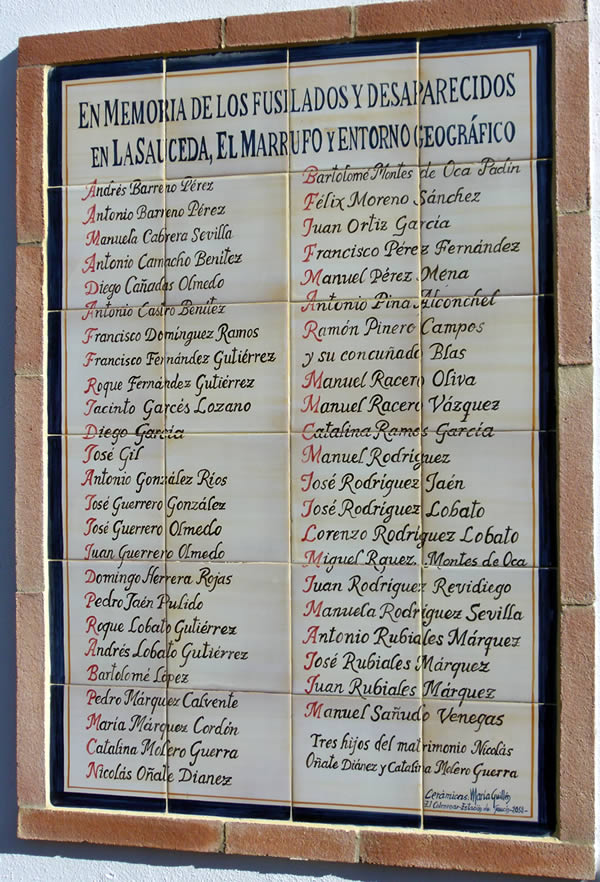 EN MEMORIA DE LOS FUSILADOS Y DESAPARECIDOS
EN LA SAUCEDA, EL MARRUFO Y ENTORNO GEOGRÁFICO
Andrés Barreno Pérez
Antonio Barreno Pérez
Manuela Cabrera Sevilla
Antonio Camacho Benítez
Diego Cañadas Olmedo
Antonio Castro Benítez
Francisco Domínguez Ramos
Francisco Fernández Gutiérrez
Roque Fernández Gutiérrez
Jacinto Garcés Lozano
Diego García
José Gil
Antonio González Ríos
José Guerrero González
José Guerrero Olmedo
Juan Guerrero Olmedo
Domingo Herrera Rojas
Pedro Jaén Pulido
Roque Lobato Gutiérrez
Andrés Lobato Gutiérrez
Bartolomé López
Pedro Márquez Calvente
María Márquez Cordón
Catalina Molero Guerra
Nicolás Oñate Dianez
Bartolomé Montes de Oca Padín
Félix Moreno Sánchez
Juan Ortiz García
Francisco Pérez Fernández
Manuel Pérez Mena
Antonio Pina Alconchel
Ramón Pinero Campos
y su concuñado Blas
Manuel Racero Oliva
Manuel Racero Vázquez
Catalina Ramos García
Manuel Rodríguez
José Rodríguez Jaén
José Rodríguez Lobato
Lorenzo Rodríguez Lobato
Miguel Rguez. Montes de Oca
Juan Rodríguez Revidiego
Manuela Rodríguez Sevilla
Antonio Rubiales Márquez
José Rubiales Márquez
Juan Rubiales Márquez
Manuel Sañudo Venegas
Tres hijos del matrimonio Nicolás
Oñate Diánez y Catalina Molero Guerra
Cerámicas. María Guillén
El Colmenar-Estación de